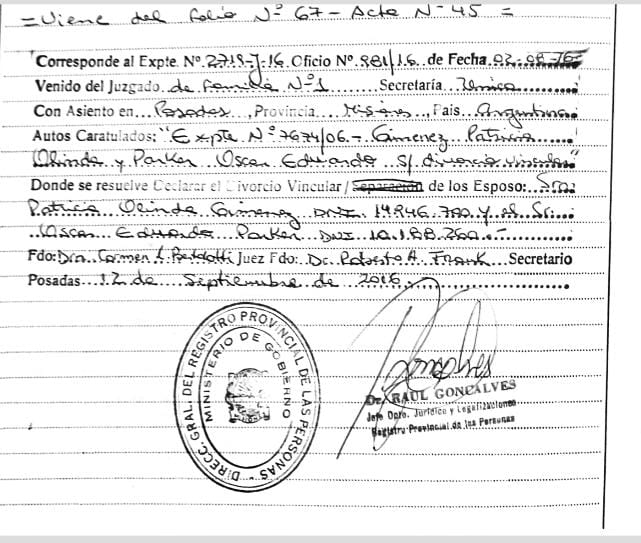 = Viene del folio Nº 67 - Acta Nº 45 =
Corresponde al Expte. Nº. 2718-J-16 Oficio Nº. 981/16 de Fecha 02.08.16
Venido del Juzgado de Familia Nº1 Secretaría Única
Con Asiento en Posadas, Provincia Misiones, Pais Argentina
Autos Caratulados: "Expte Nº 7674/06 - Gimenez Patricia
Olinda y Parker Oscar Eduardo S/ divorcio vincular"
Donde se resuelve Declarar el Divorcio Vincular / Separación de los Esposo: Sra.
Patricia Olinda Gimenez DNI. 14.946.780 y el Sr.
Oscar Eduardo Parker DNI 10.188.260.-
Fdo: Dra. Carmen L. Juez Fdo: Dr. Roberto A. FRANK Secretario
Posadas 12 de Septiembre de 2016
DIRECC. GRAL. DEL REGISTRO PROVINCIAL DE LAS PERSONAS -
MINISTERIO DE GOBIERNO
Goncalves
Dr. RAUL GONCALVES
Jefe Dpto. Jurídico y Legalizaciones
Registro Provincial de las Personas